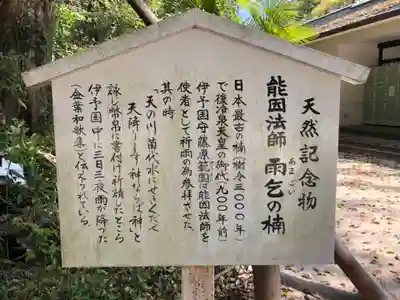 天然記念物
能因法師 雨乞の楠
あまごい
日本最古の楠(樹令三〇〇〇年)
で後冷泉天皇の御代(九〇〇年前)
伊予国守藤原範国は能因法師を
使者として祈雨の為参拝させた
其の時
「天の川苗代水にせきくだせ
天降ります神ならば神」と
詠じ幣帛に書付け祈請したところ
伊予国中に三日三夜雨が降った
(金葉和歌集)と伝えられている。